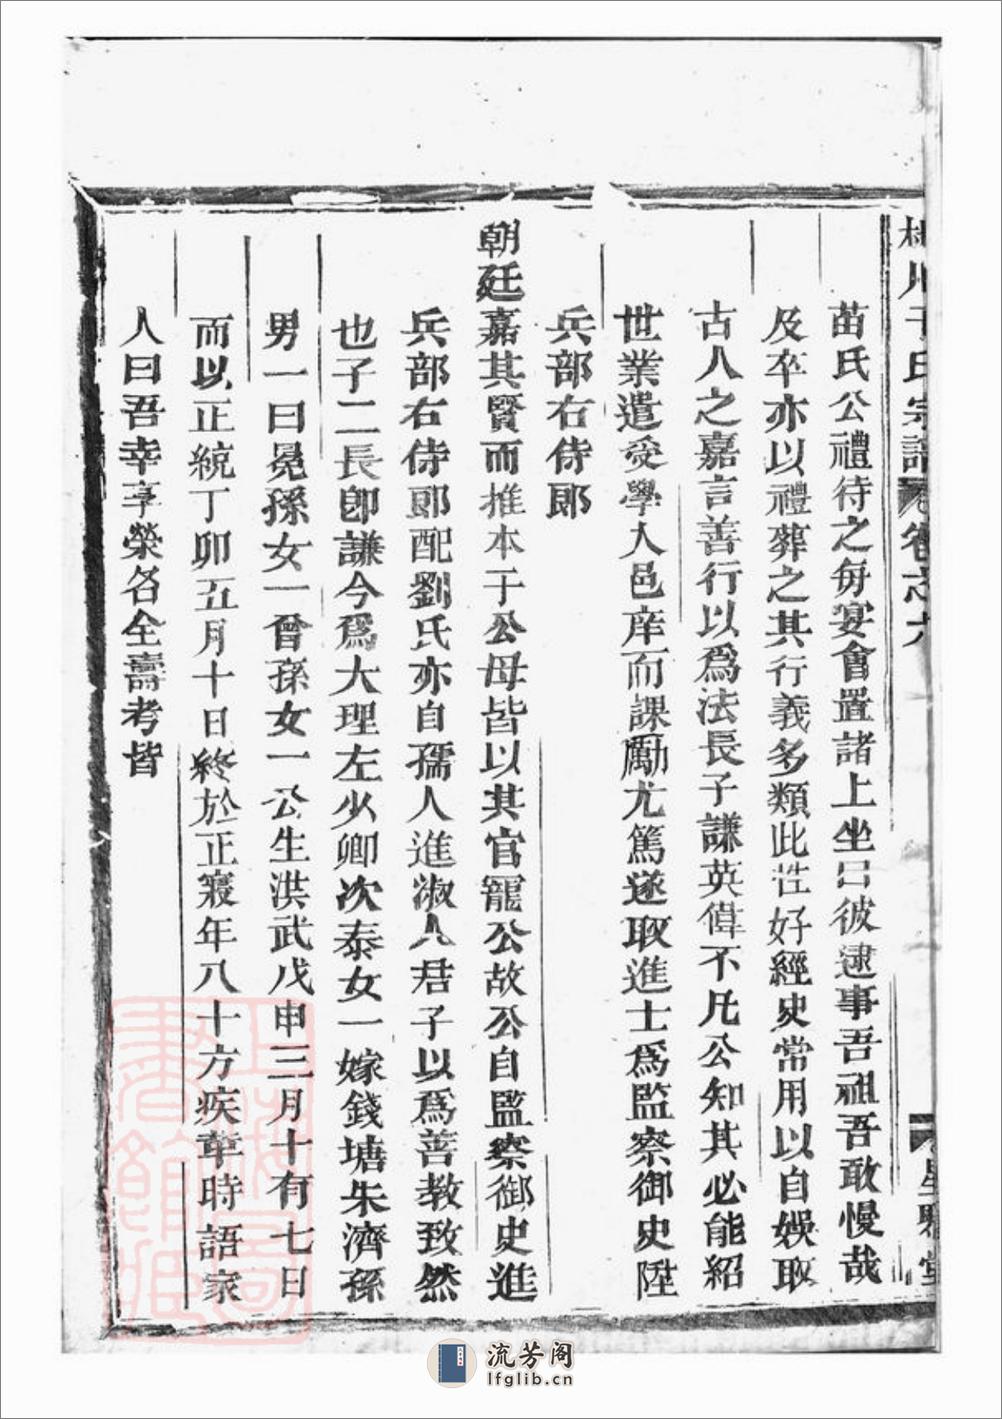 于氏宗譜 卷之六
苗氏公禮待之每宴會置諸上坐曰彼逮事吾祖吾敢慢哉
及卒亦以禮葬之其行義多類此性好經史常用以自娛取
古人之嘉言善行以爲法長子謙英偉不凡公知其必能紹
世業遣受學入邑庠而課勵尤篤遂取進士爲監察御史陞
兵部右侍郎
朝廷嘉其賢而推本于公母皆以其官寵公故公自監察御史進
兵部右侍郎配劉氏亦自孺人進淑人君子以爲善教致然
也子二長卽謙今爲大理左少卿次泰女一嫁錢塘朱濟孫
男一曰冕孫女一曾孫女一公生洪武戊申三月十有七日
而以正統丁卯五月十日終於正寢年八十方疾革時語家
人曰吾幸享榮名全壽考皆
上海圖書館藏
流芳阁
lfglib.cn